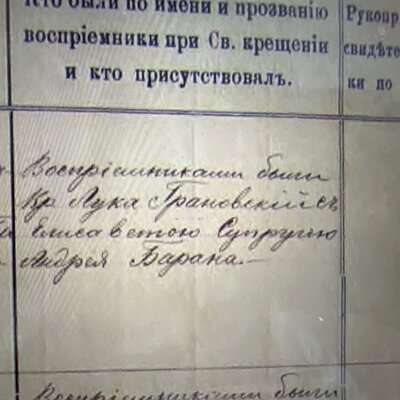 Кто были по имени и прозванію
воспріемники при Св. крещеніи
и кто присутствовалъ.
Рукопр
свидѣте
ки по
Воспріемниками были
Кр Лука Грановскій съ
Елисаветою Супругою
Андрея Барана.—
Воспріемниками были